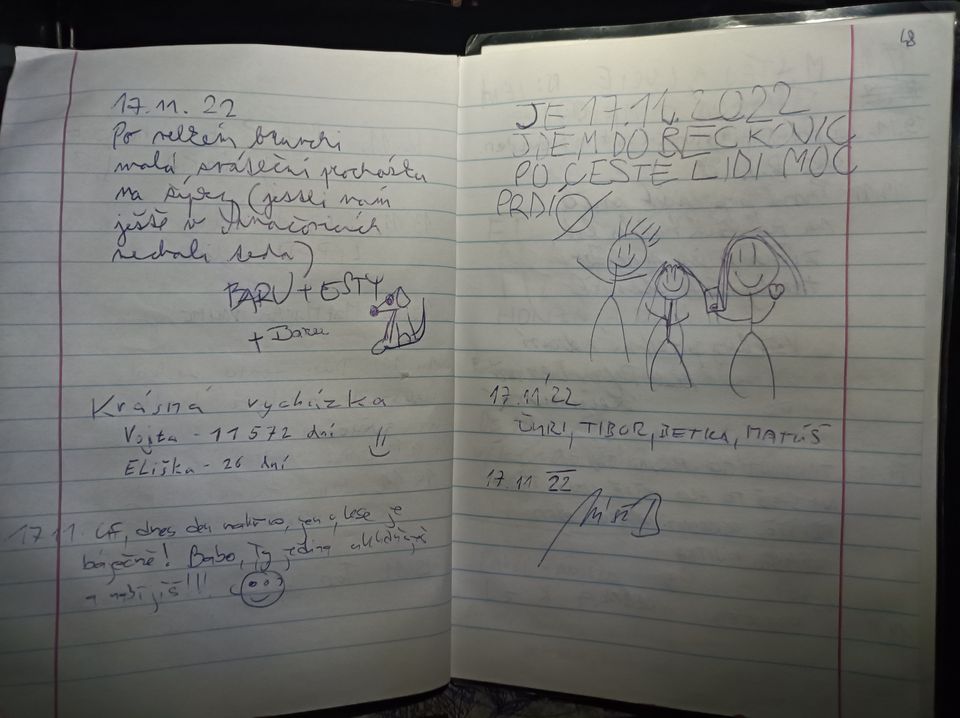 17.11.22
Po velkém brunchi
malá, sváteční procházka
na (jestli nám
ještě v Ivanovicích
nechali )
BARU + ESTY
+ Baru
Krásná vycházka
Vojta - 11 572 dní
Eliška - 26 dní
17.11. dnes den, jen v lese je
báječně! Babo, Ty jediná uklidňuješ
a nabíjíš!!!
48
JE 17.11.2022
JDEM DO ŘEČKOVIC
PO CESTĚ LIDI MOC
PRDÍ
17.11.22
TIBOR, BETKA, MATÚŠ
17.11 22